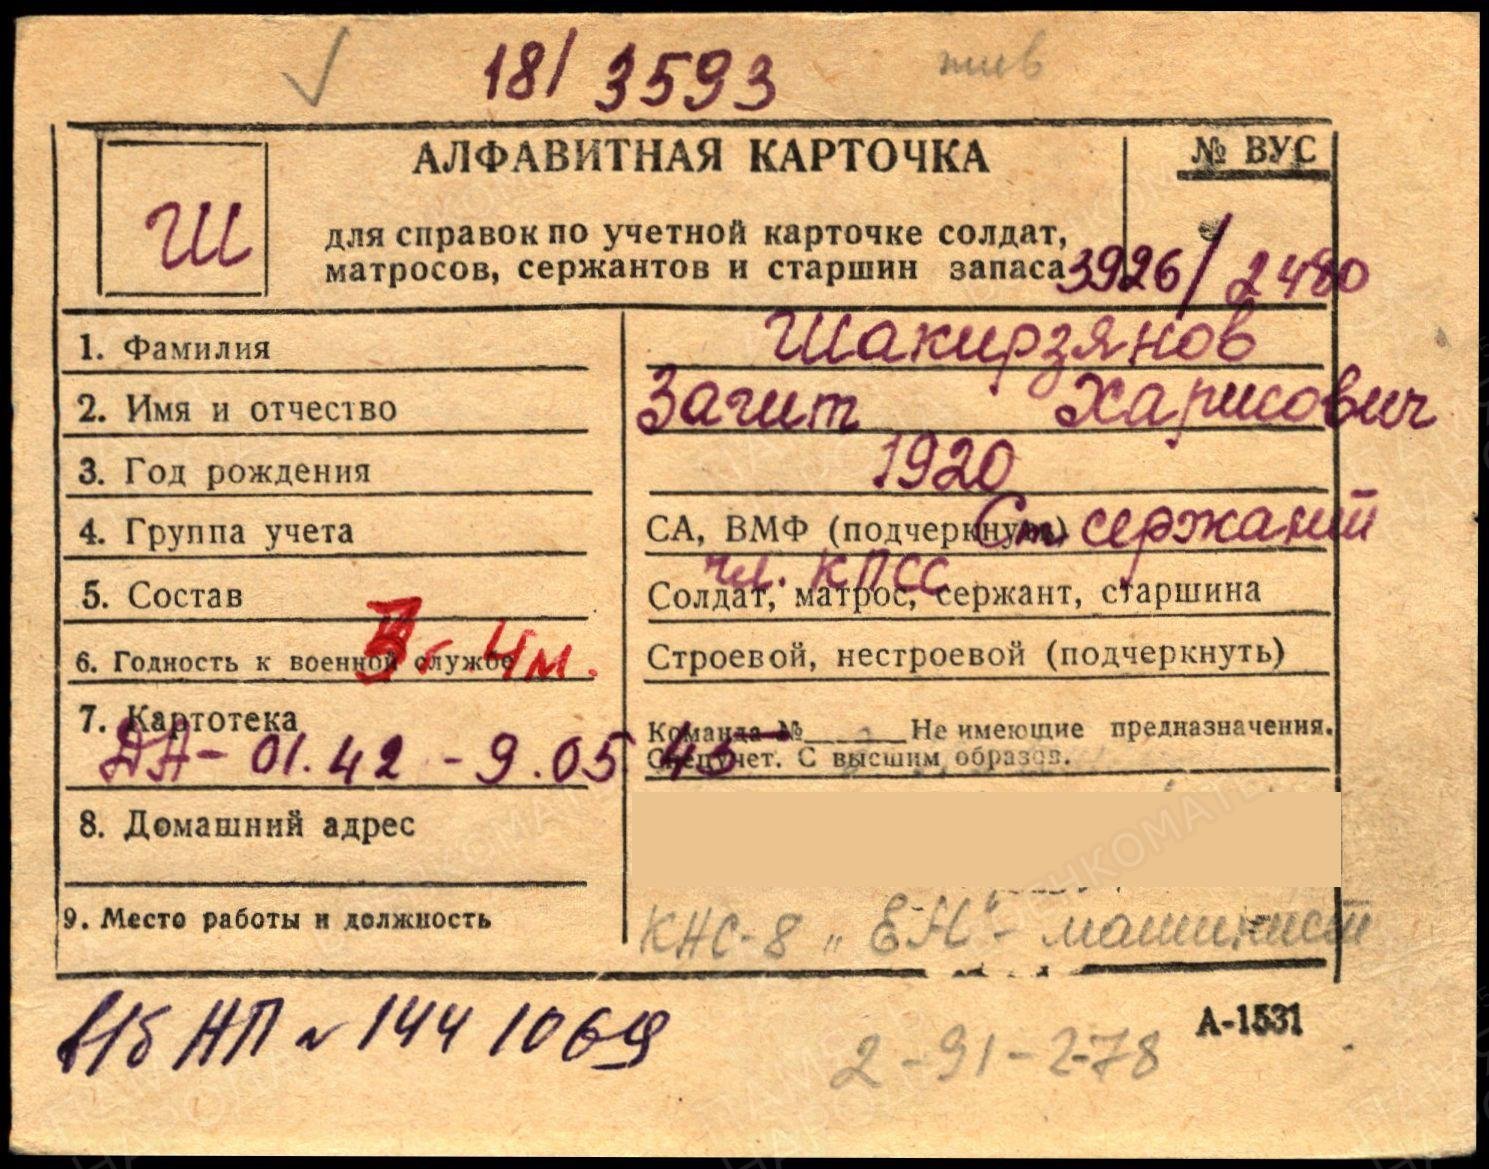 18/ 3593 жив
АЛФАВИТНАЯ КАРТОЧКА
№ ВУС
Ш
для справок по учетной карточке солдат,
матросов, сержантов и старшин запаса
3926/2480
1. Фамилия Шакирзянов
2. Имя и отчество Загит Харисович
3. Год рождения 1920
4. Группа учета СА, ВМФ (подчеркнуть) Ст. сержант
чл. КПСС
5. Состав Солдат, матрос, сержант, старшина
3г. 4м.
6. Годность к военной службе Строевой, нестроевой (подчеркнуть)
7. Картотека Команда № Не имеющие предназначения.
Спецучет. С высшим образов.
ДА - 01.42 - 9.05.45
8. Домашний адрес
9. Место работы и должность КНС-8 „ЕН" - машинист
А-1531
НП № 1441069
2-91-2-78